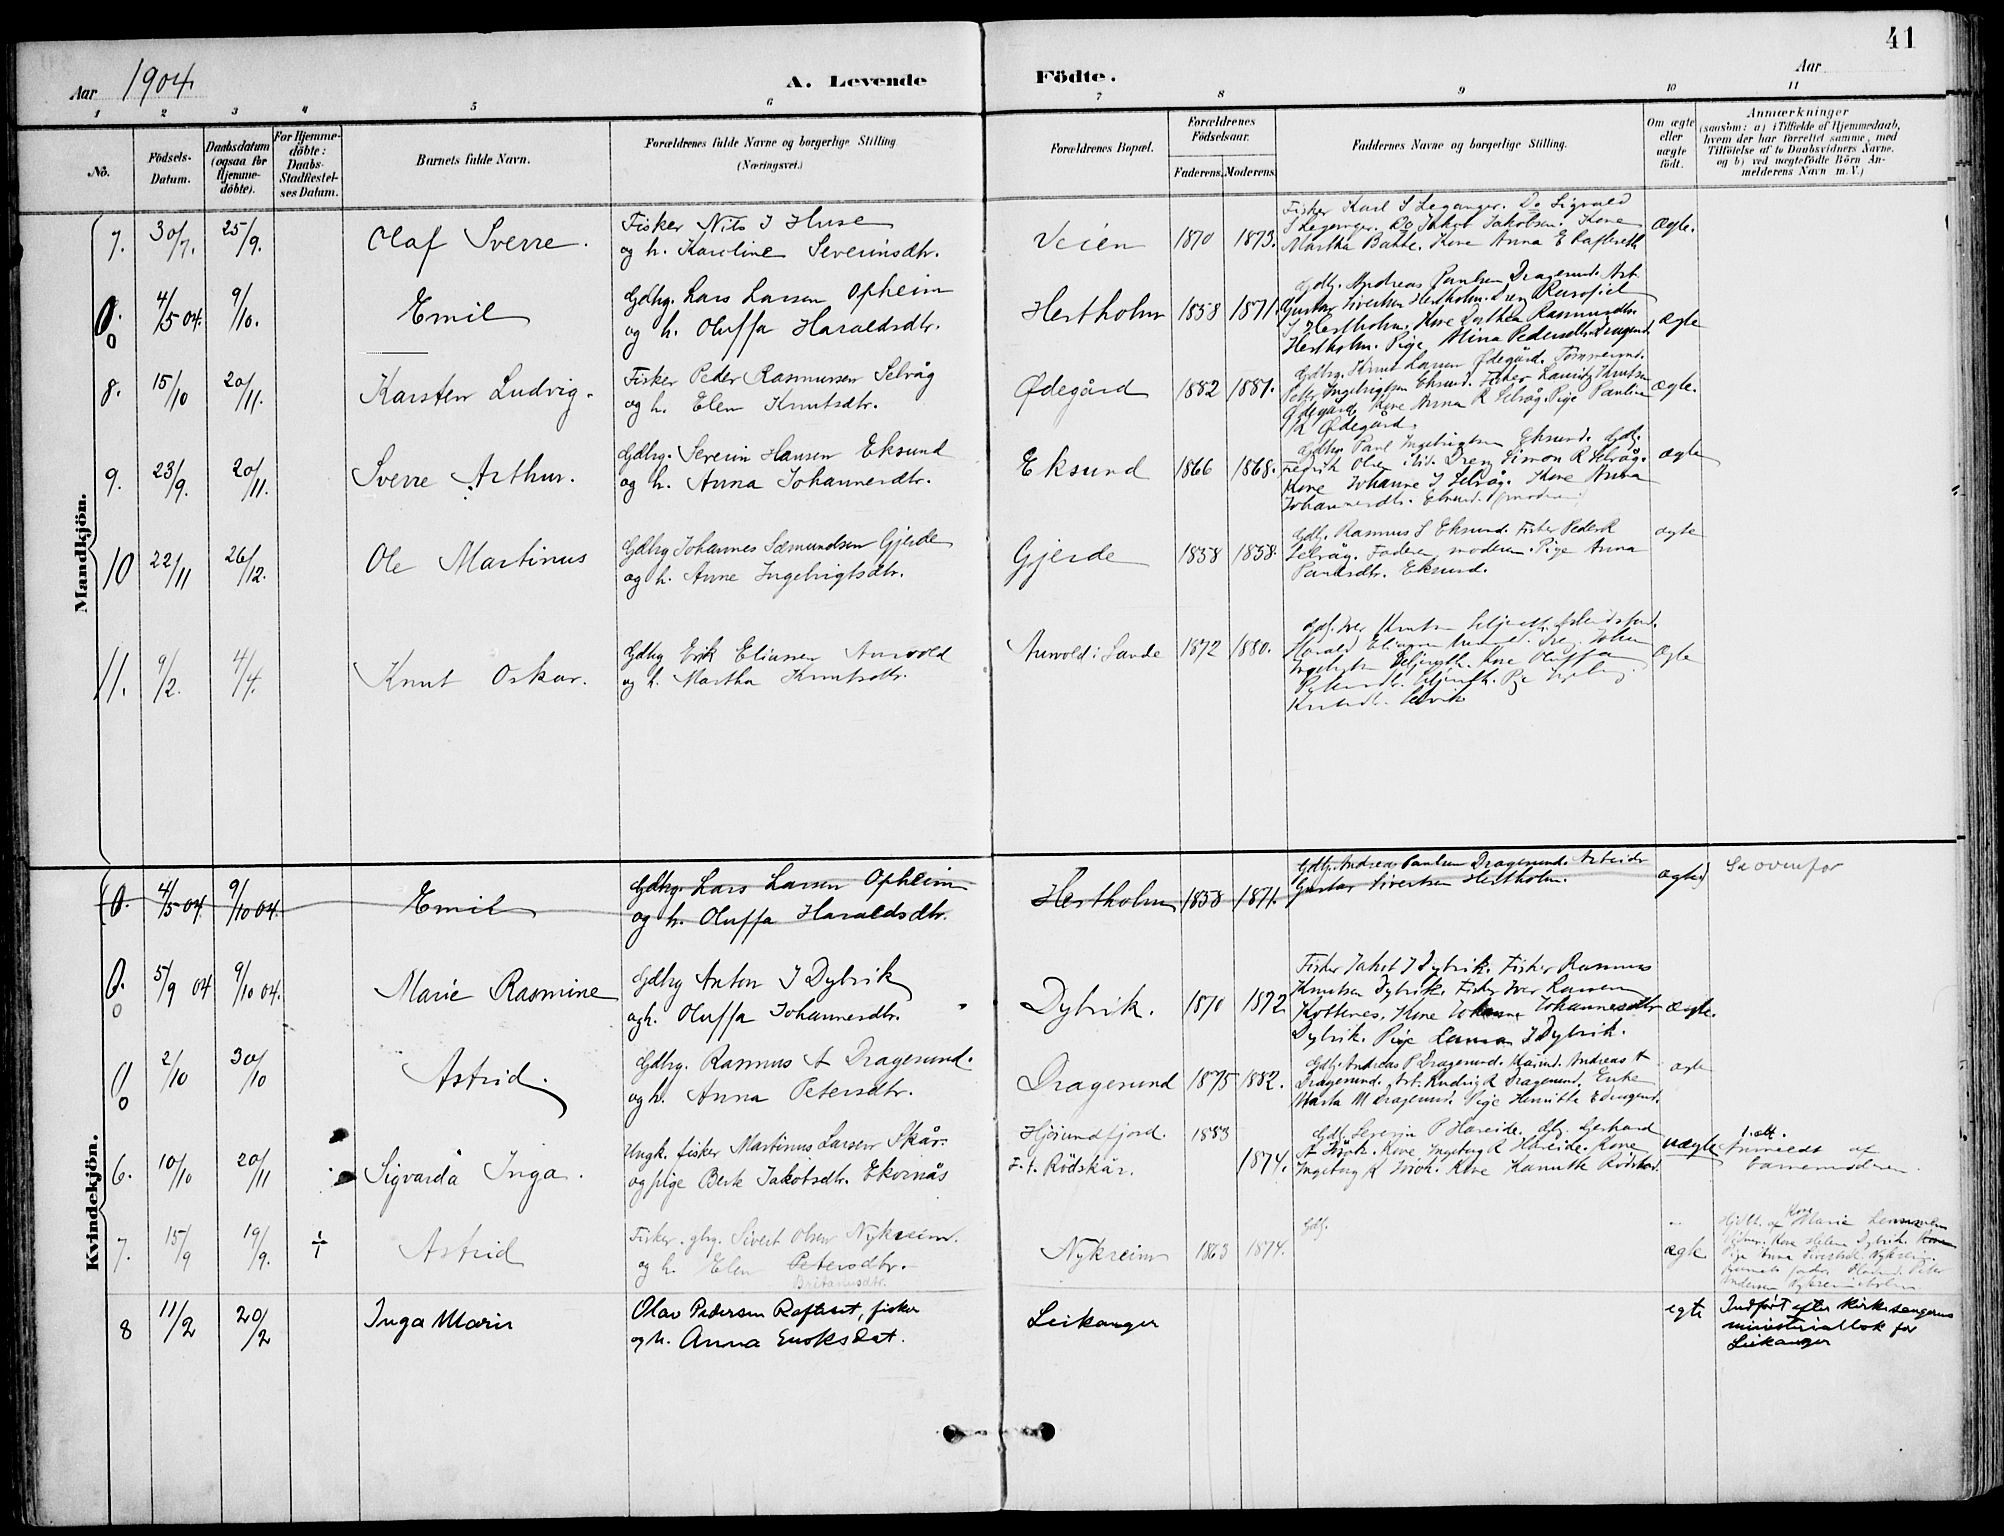 41
Aar 1904.
A. Levende Födte.
Aar
1 2 3 4 5 6 7 8 9 10 11
No.
Födsels-
Datum.
Daabsdatum
(ogsaa for
Hjemme-
döbte).
For Hjemme-
döbte:
Daabs-
Stadfæstel-
ses Datum.
Barnets fulde Navn.
Forældrenes fulde Navne og borgerlige Stilling
(Næringsvei.)
Forældrenes Bopæl.
Forældrenes
Födselsaar.
Faderens. Moderens.
Faddernes Navne og borgerlige Stilling.
Om ægte
eller
uægte
födt.
Anmærkninger
(saasom: a) i Tilfælde af Hjemmedaab,
hvem der har forrettet samme, med
Tilföielse af to Daabsvidners Navne,
og b) ved uægtefödte Börn An-
melderens Navn m. V.)
Mandkjön.
7. 30/7. 25/9. Olaf Sverre.
Fisker Nils J Huse
og h. Karoline Severinsdtr.
Veien 1870 1873.
Fisker Karl S Leganger. Do Sigvald
S Leganger. Do Jakob Jakobsen Kone
Martha Bakke. Kone Anna E Rafteseth
Ægte.
0. 4/5 04. 9/10. Emil
Gdbg. Lars Larsen Opheim
og h. Oluffa Haraldsdtr.
Hestholm 1858 1871.
Gdbg. Andreas Paulsen Dragesund. Arb.
Gustav Sivertsen Hestholm. Dreng
S Hestholm. Kone Dorthea Rasmusdtr.
Hestholm. Pige Alina Pedersdtr. Dragesund.
ægte
8. 15/10 20/11. Karsten Ludvig.
Fisker Peder Rasmussen Selvåg
og h. Elen Knutsdtr.
Ødegård 1882 1881.
Gdbg. Knut Larsen Ødegård. Tömmermd.
Peter Ingebrigtsen Eksund. Fisker Lauritz Knutsen
Ødegård. Kone Anna R Selvåg. Pige Pauline
R Ødegård.
ægte.
9. 23/9. 20/11. Sverre Arthur.
Gdbg. Severin Hansen Eksund
og h. Anna Johannesdtr.
Eksund 1866 1868.
Paul Ingebrigtsen Eksund. Gdb.
Fredrik Olsen ibid. Dreng Simon R Selvåg.
Kone Johanne J Selvåg. Kone Anna
Johannesdtr. Eksund. (moderen)
ægte
10 22/11 26/12. Ole Martinus
Gdbg Johannes Sæmundsen Gjerde
og h. Anne Ingebrigtsdtr.
Gjerde 1858 1858.
Gdb. Rasmus S Eksund. Fisker Peder R
Selvåg. Faderen, moderen. Pige Anna
Paulsdtr. Eksund.
ægte
11. 9/2. 4/4. Knut Oskar.
Gdbg Erik Eliasen Aurvold
og h. Martha Knutsdtr.
Aurvold i Sande 1872 1880.
Gdb. Iver Knutsen
Harald Eliasen Aurvold. Johan
Kone Oluffa
Knutsdtr.
Ægte
Kvindekjön.
0. 4/5 04. 9/10 04. Emil
Gdbg. Lars Larsen Opheim
og h. Oluffa Haraldsdtr.
Hestholm 1858 1871.
Gdbg. Andreas Paulsen Dragesund. Arbeider
Gustav Sivertsen Hestholm.
ægte) Se ovenfor
0. 5/9 04 9/10 04. Marie Rasmine
Gdbg Anton J Dybvik
og h. Oluffa Johannesdtr.
Dybvik. 1870 1872
Fisker Jakob J Dybvik. Fisker Rasmus
Knutsen Dybvik. Fisker Iver Larsen
Kone Johanne Johannesdtr
Dybvik. Pige Laura J Dybvik.
ægte.
0 2/10 30/10 Astrid.
Gdbg. Rasmus A Dragesund.
og h. Anna Petersdtr.
Dragesund 1875 1882.
Gdb. Andreas P Dragesund. Andreas A
Dragesund. Arb. Ludvig R Dragesund. Enke
Marta M Dragesund. Pige Henritte R Dragesund.
ægte
6. 10/10 20/11 Sigvarda Inga.
Ungk. fisker Martinus Larsen Skår.
og pige Berte Jakobsdtr. Ekornås
Hjörundfjord. 1883
F. t. Rödskár. 1874.
Gdb. Severin P Hareide. Gbg. Gerhard
Kone Ingeborg R Hareide. Kone
Ingeborg R Kone Rödskar.
uægte
Anmeldt af
barnemoderen.
7. 15/9 19/9. ÷ Astrid
Fisker. gbg. Sivert Olsen Nykreim.
og h. Elen Petersdtr.
Britanusdtr.
Nykreim 1863 1874.
Gdb.
ægte
Hjdbt. af Kone Marie
Kone Helene Dybvik. Kone
Pige Anna Sivertsdt. Nykreim.
8 11/2 20/2 Inga Marie
Olav Pedersen Rafteset, fisker
og h. Anna Enoksdat.
Leikanger
egte
Indfört efter kirkesangerens
ministerialbok for
Leikanger